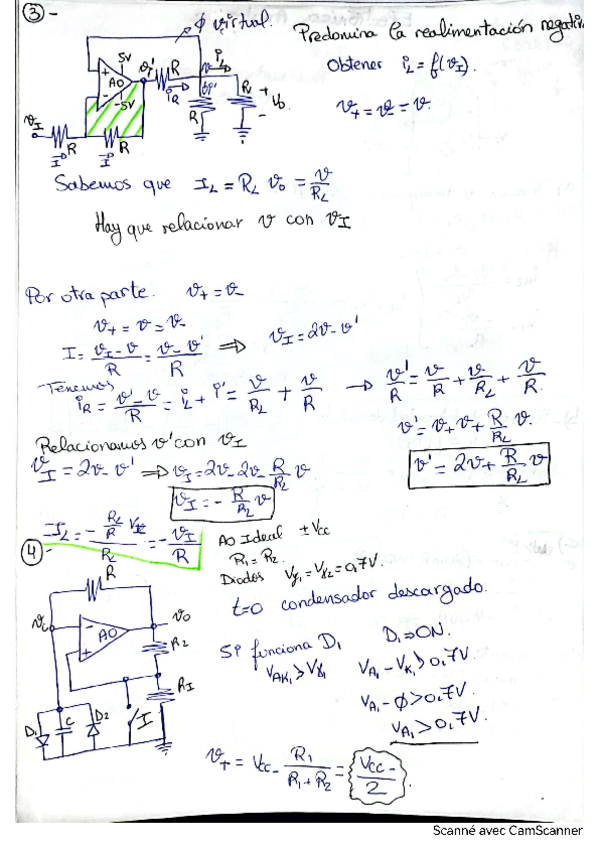 ③-
φ virtual.
Predomina la realimentación negativa
Obtener i_L = f(v_I).
v₊ = v₋ = v.
5V
AO
-5V
v'
R
i_R
v
i_L
i'
R
R_L
+
V_o
-
v_I
I
R
I
R
Sabemos que I_L = R_L v_o = v/R_L
Hay que relacionar v con v_I
Por otra parte. v₊ = v₋
v₊ = v = v₋
I = (v_I - v)/R = (v - v')/R ⇒ v_I = 2v - v'
Tenemos
i_R = (v' - v)/R = i_L + i' = v/R_L + v/R → v'/R = v/R + v/R_L + v/R.
v' = v + v + (R/R_L) v.
v' = 2v + (R/R_L) v
Relacionamos v' con v_I
v_I = 2v - v' ⇒ v_I = 2v - 2v - (R/R_L) v
v_I = - (R/R_L) v
I_L = (- (R_L/R) v_I)/R_L = - v_I/R
④-
AO Ideal ± Vcc
R₁ = R₂.
Diodos Vγ₁ = Vγ₂ = 0,7V.
t=0 condensador descargado.
R
v_c
-
AO
+
v_o
R₂
R₁
D₁
C
D₂
I
Si funciona D₁ D₁ ⇒ ON.
V_AK₁ > Vγ₁ V_A₁ - V_K₁ > 0,7V
V_A₁ - φ > 0,7V.
V_A₁ > 0,7V.
v₊ = Vcc - R₁/(R₁ + R₂) = Vcc -/2
Scanné avec CamScanner